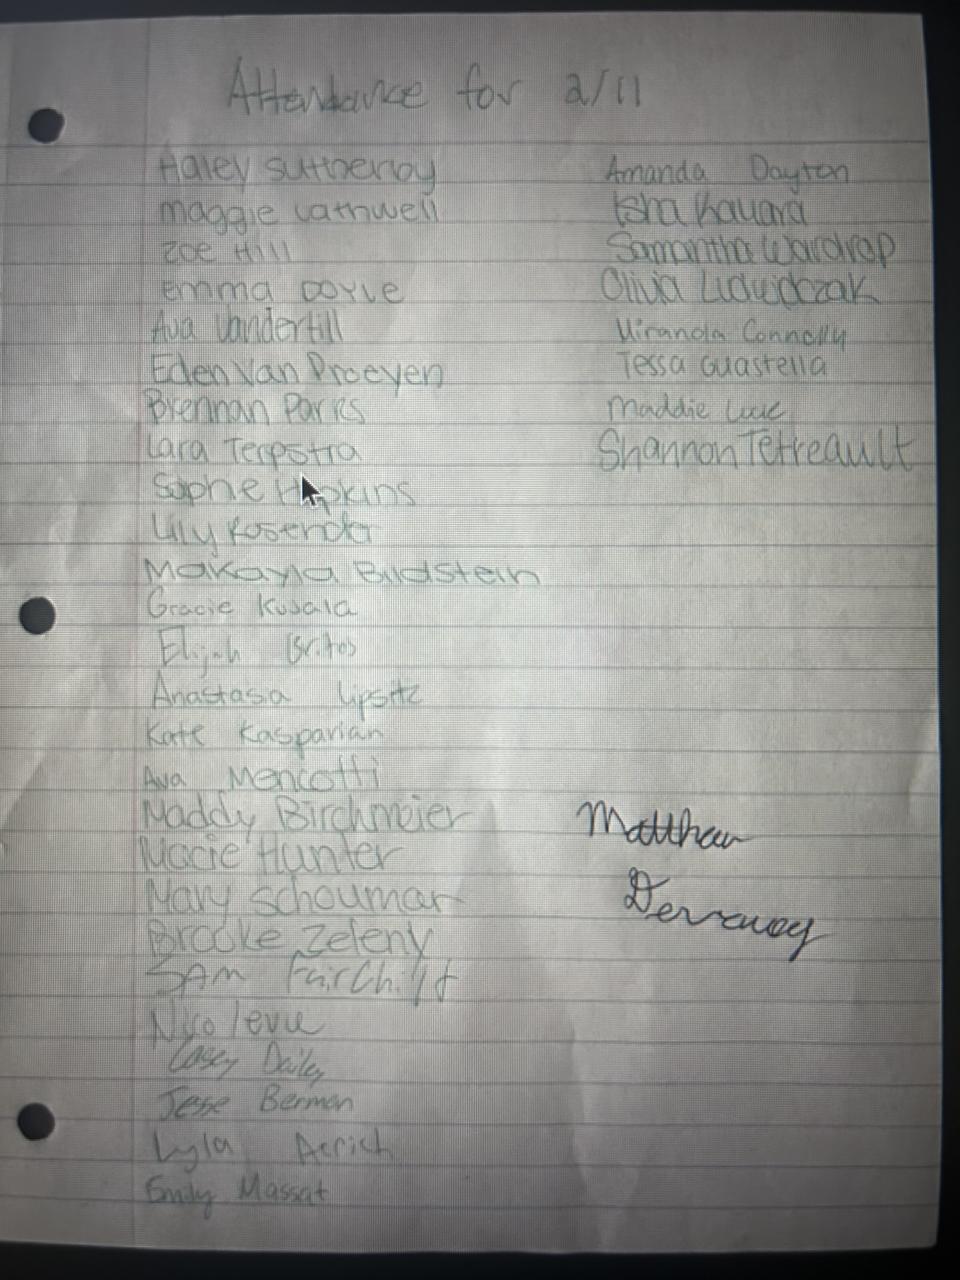 Attendance for 2/11
Haley Suthenay
maggie Lathwell
Zoe Hill
emma DOYLE
Ava Vandertill
Eden Van Proeyen
Brennan Parks
Lara Terpstra
Sophie Hopkins
Lily
Makayla Bildstein
Gracie Kusala
Elijah Britos
Anastasia Lipsitz
Kate Kasparian
Ava Mencotti
Maddy Birchmeier
Macie Hunter
Mary Schoumar
Brooke Zeleny
SAM
Nico
Casey Dailey
Jesse Berman
Lyla
Emily Massat
Amanda Dayton
Isha
Samantha Wardrop
Olivia
Miranda Connolly
Tessa Guastella
Maddie
Shannon Tetreault
Matthew